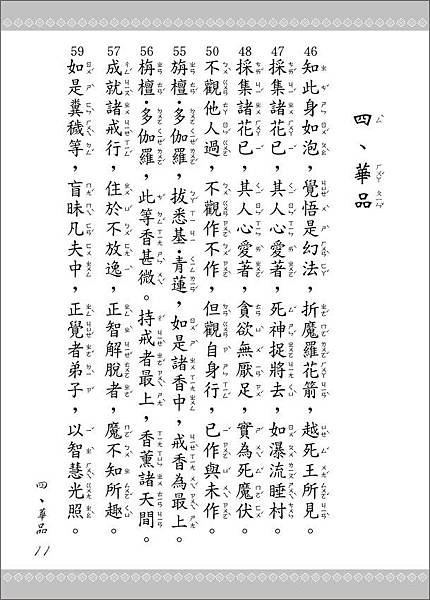 四、華品
46 知此身如泡，覺悟是幻法，折魔羅花箭，越死王所見。
47 採集諸花已，其人心愛著，死神捉將去，如瀑流睡村。
48 採集諸花已，其人心愛著，貪欲無厭足，實為死魔伏。
50 不觀他人過，不觀作不作，但觀自身行，已作與未作。
55 栴檀．多伽羅，拔悉基．青蓮，如是諸香中，戒香為最上。
56 栴檀．多伽羅，此等香甚微。持戒者最上，香薰諸天間。
57 成就諸戒行，住於不放逸，正智解脫者，魔不知所趣。
59 如是糞穢等，盲昧凡夫中，正覺者弟子，以智慧光照。
四、華品
11